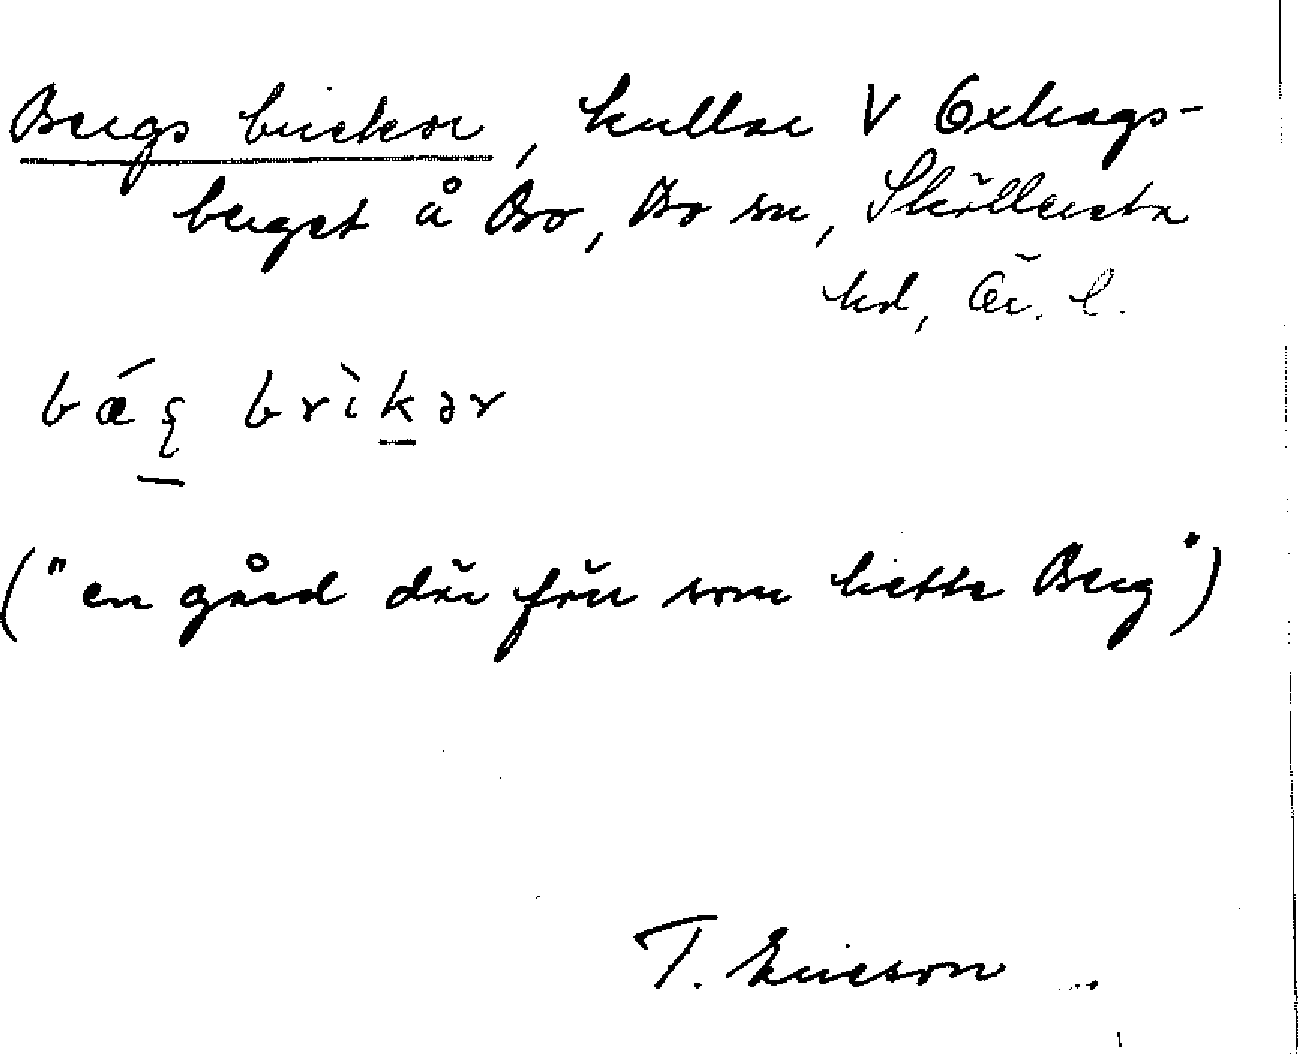 Bergs brickor, kullar V Oxhags-
berget å Bo, Bo sn, Sköllersta
hd, Ör. l.
bæ̀ʂ brìkər
("en gård där förr som hette Berg")
T. Ericson